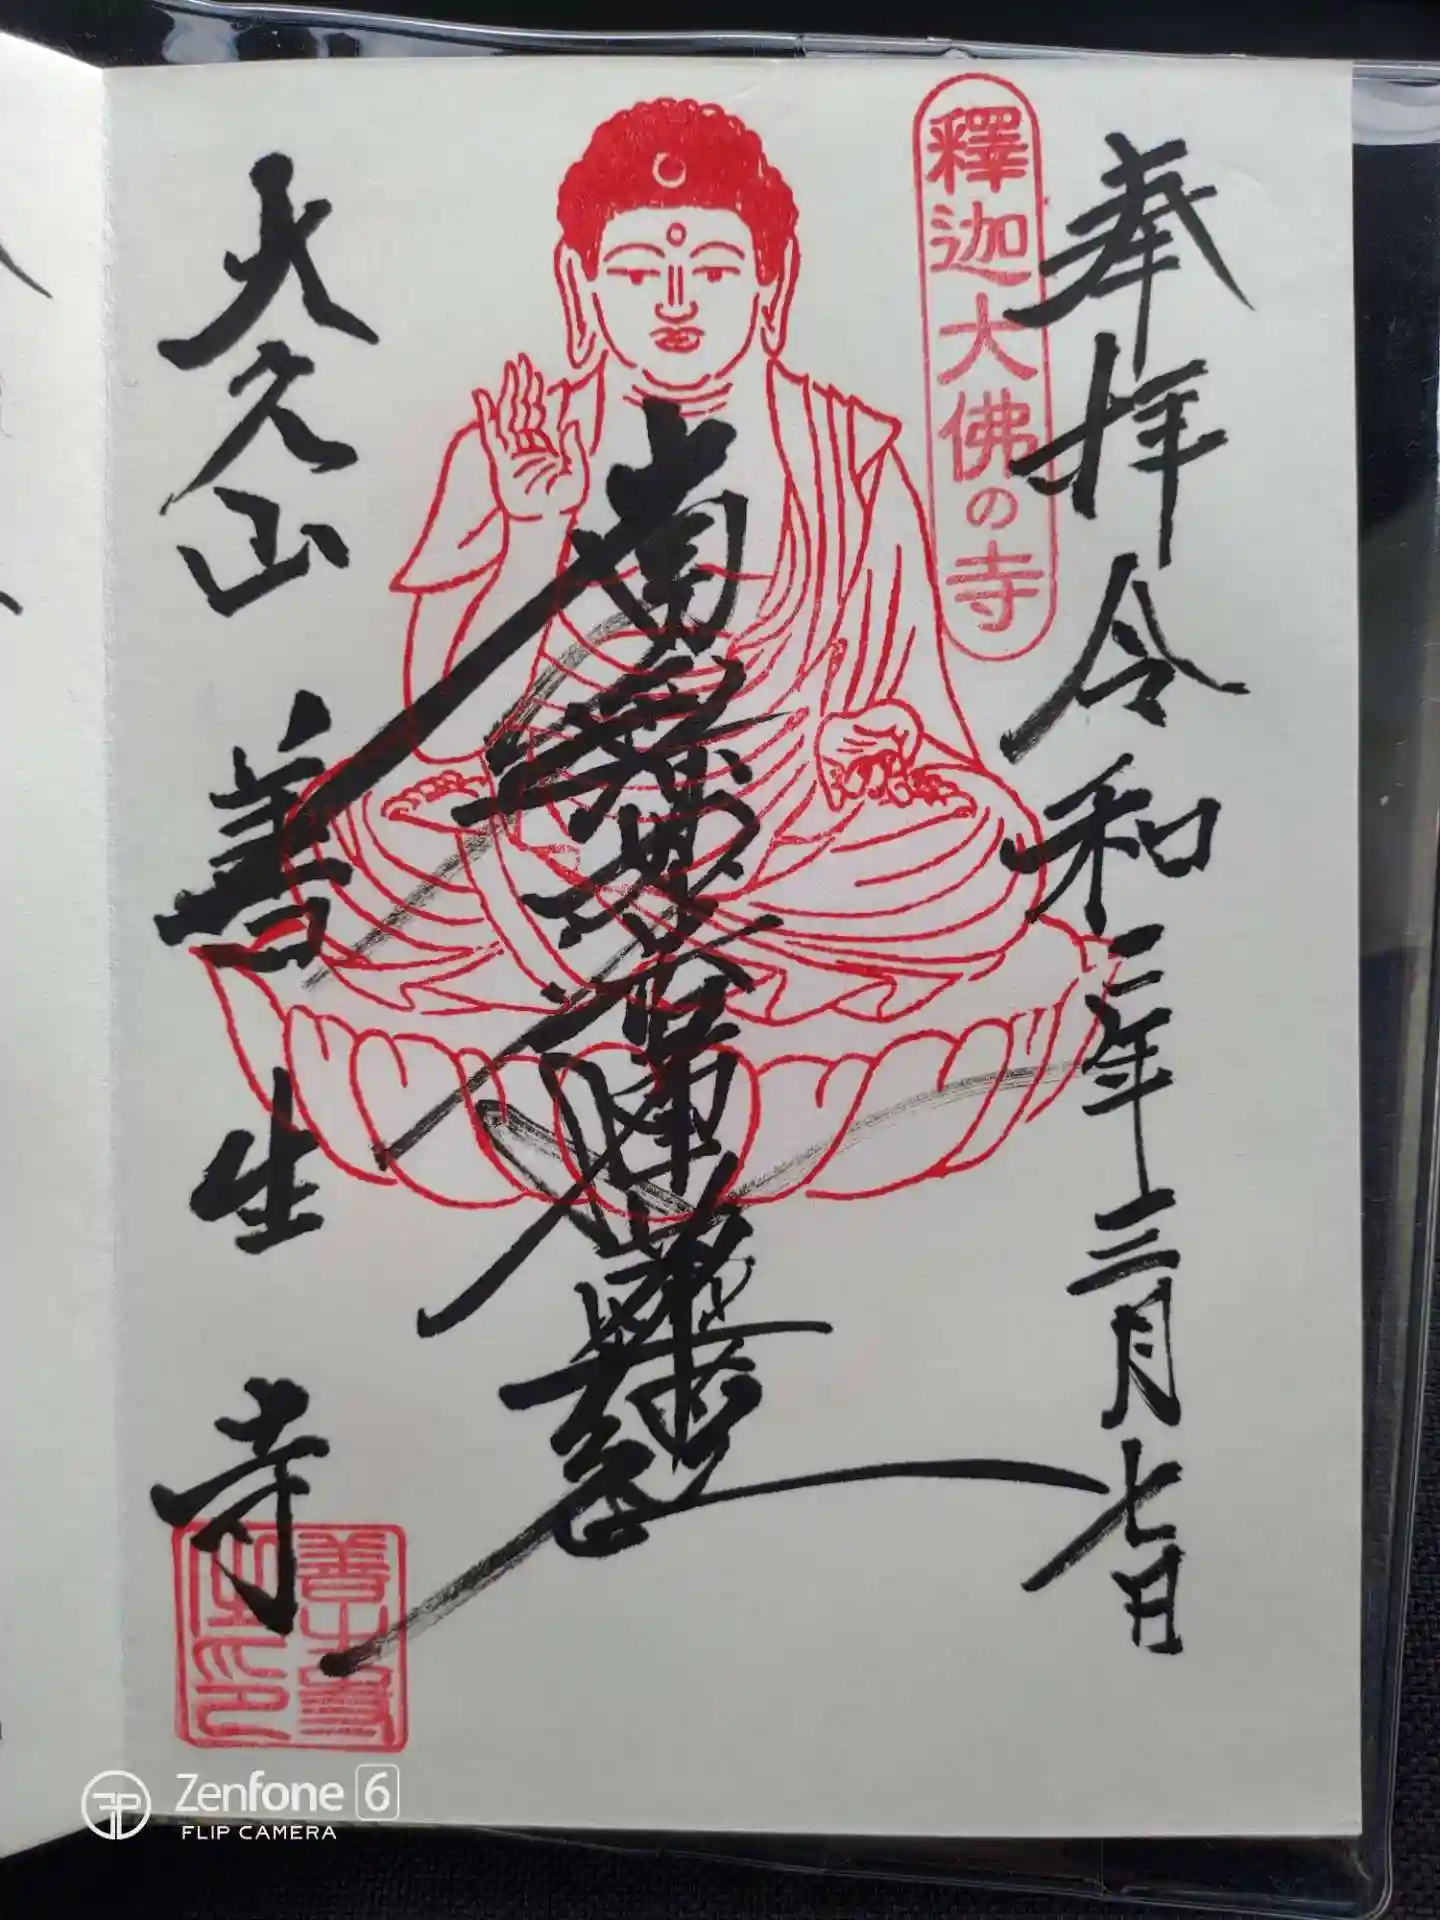 奉拝 令和二年三月七日
釋迦大佛の寺
南無
大久山 善生寺
善生寺
之印
Zenfone 6
FLIP CAMERA